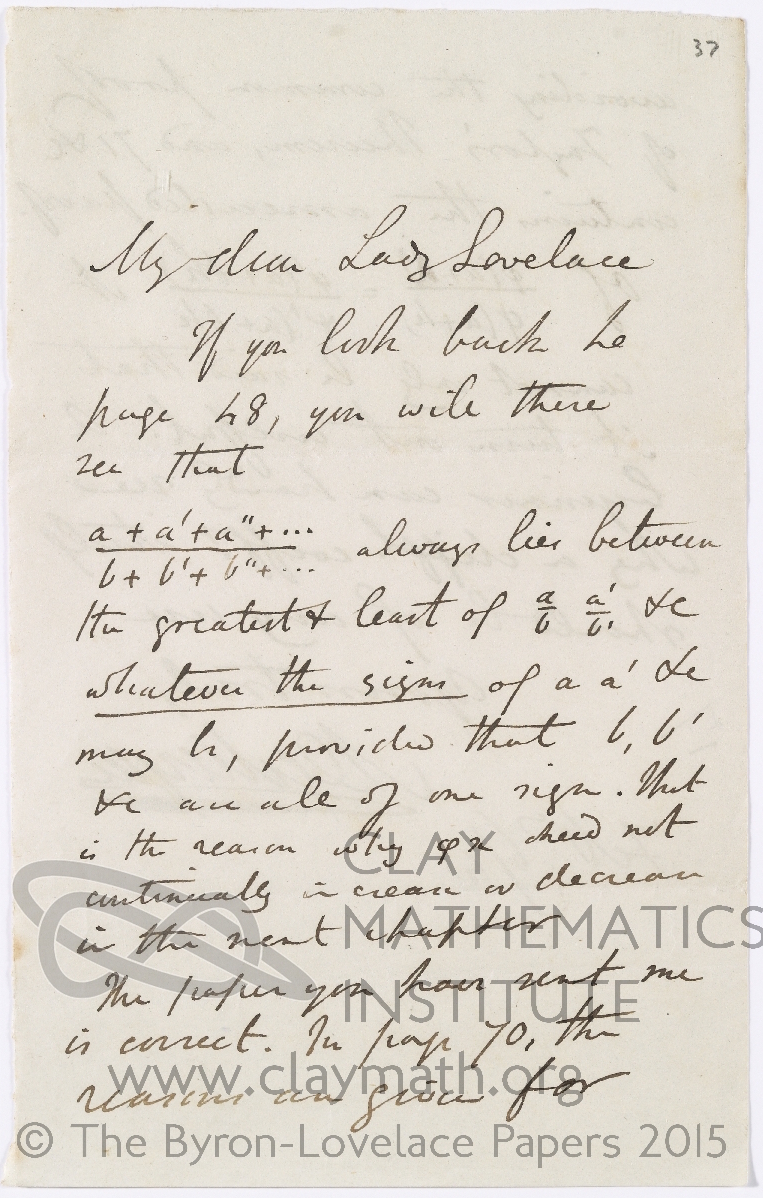 37
My dear Lady Lovelace
If you look back to
page 48, you will there
see that
a + a' + a'' + ... / b + b' + b'' + ... always lies between
the greatest & least of a/b a'/b' &c
whatever the signs of a a' &c
may be, provided that b, b'
&c are all of one sign. That
is the reason why φx need not
continually increase or decrease
in the next chapter
The paper you have sent me
is correct. In page 70, the
reasons are given for
CLAY
MATHEMATICS
INSTITUTE
www.claymath.org
© The Byron-Lovelace Papers 2015